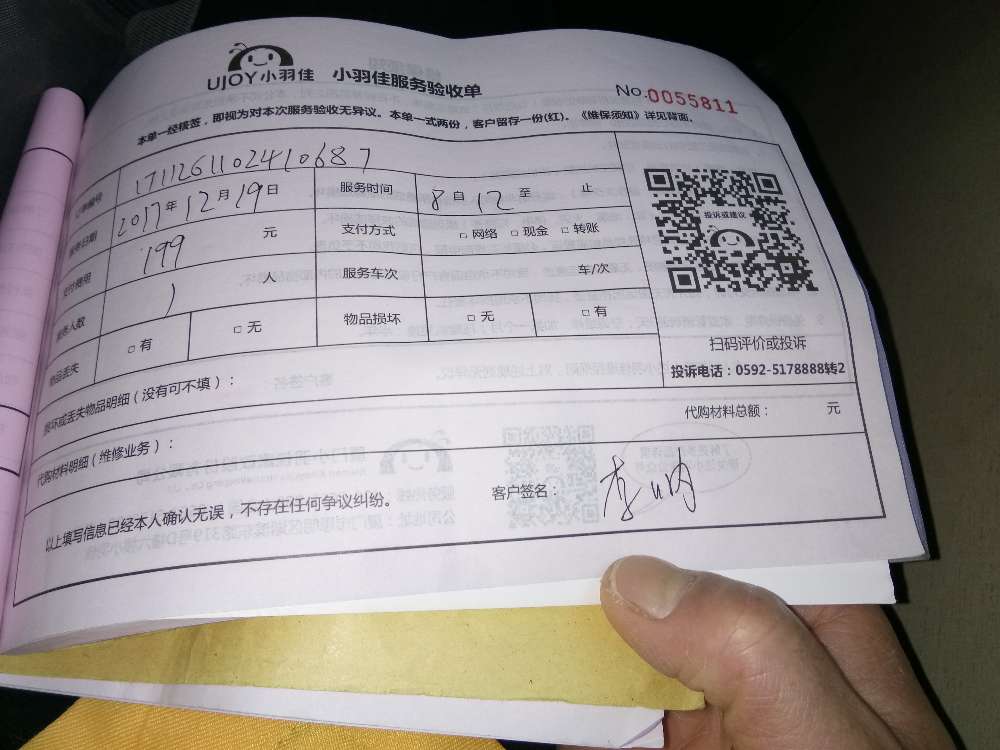 UJOY小羽佳 小羽佳服务验收单
No.0055811
本单一经核签，即视为对本次服务验收无异议。本单一式两份，客户留存一份(红)。《维保须知》详见背面。
订单编号 171126110241068 7
服务日期 2017年12月19日 服务时间 8自12至 止
支付费用 199 元 支付方式 □网络 □现金 □转账
服务人数 1 人 服务车次 车/次
物品丢失 □有 □无 物品损坏 □无 □有
投诉或建议
扫码评价或投诉
投诉电话：0592-5178888转2
损坏或丢失物品明细（没有可不填）：
代购材料明细（维修业务）： 代购材料总额： 元
以上填写信息已经本人确认无误，不存在任何争议纠纷。 客户签名：